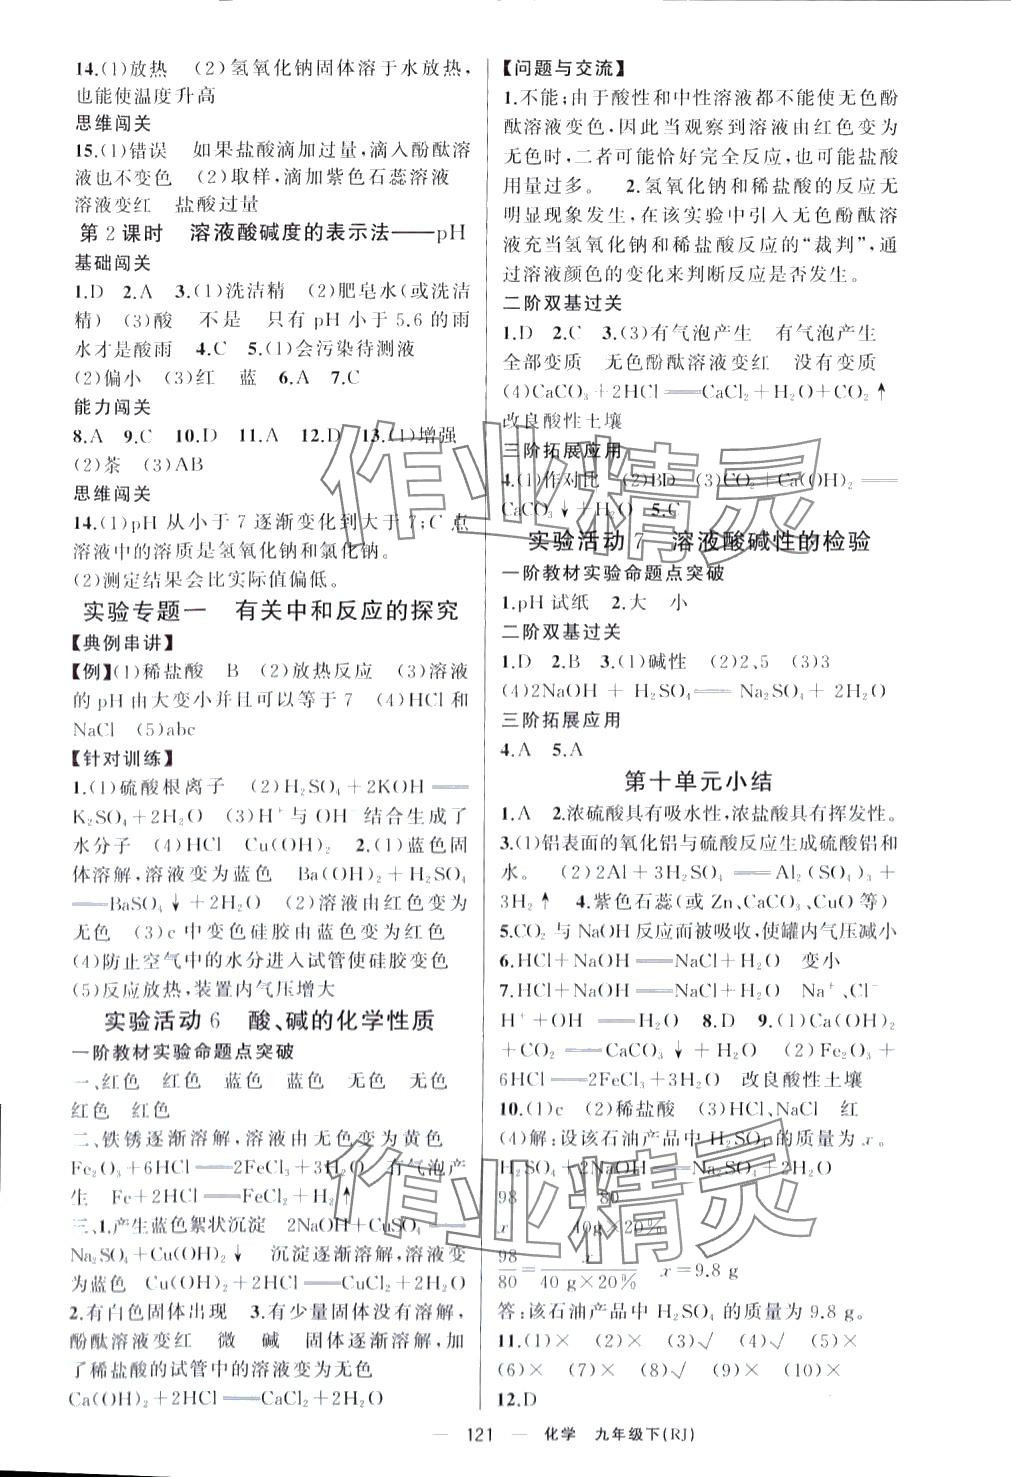 14.(1)放热 (2)氢氧化钠固体溶于水放热,
也能使温度升高
思维闯关
15.(1)错误 如果盐酸滴加过量,滴入酚酞溶
液也不变色 (2)取样,滴加紫色石蕊溶液
溶液变红 盐酸过量
第2课时 溶液酸碱度的表示法——pH
基础闯关
1.D 2.A 3.(1)洗洁精 (2)肥皂水(或洗洁
精) (3)酸 不是 只有pH小于5.6的雨
水才是酸雨 4.C 5.(1)会污染待测液
(2)偏小 (3)红 蓝 6.A 7.C
能力闯关
8.A 9.C 10.D 11.A 12.D 13.(1)增强
(2)茶 (3)AB
思维闯关
14.(1)pH从小于7逐渐变化到大于7;C点
溶液中的溶质是氢氧化钠和氯化钠。
(2)测定结果会比实际值偏低。
实验专题一 有关中和反应的探究
【典例串讲】
【例】(1)稀盐酸 B (2)放热反应 (3)溶液
的pH由大变小并且可以等于7 (4)HCl和
NaCl (5)abc
【针对训练】
1.(1)硫酸根离子 (2)H₂SO₄+2KOH══
K₂SO₄+2H₂O (3)H⁺与OH⁻结合生成了
水分子 (4)HCl Cu(OH)₂ 2.(1)蓝色固
体溶解,溶液变为蓝色 Ba(OH)₂+H₂SO₄
══BaSO₄↓+2H₂O (2)溶液由红色变为
无色 (3)c中变色硅胶由蓝色变为红色
(4)防止空气中的水分进入试管使硅胶变色
(5)反应放热,装置内气压增大
实验活动6 酸、碱的化学性质
一阶教材实验命题点突破
一、红色 红色 蓝色 蓝色 无色 无色
红色 红色
二、铁锈逐渐溶解,溶液由无色变为黄色
Fe₂O₃+6HCl══2FeCl₃+3H₂O 有气泡产
生 Fe+2HCl══FeCl₂+H₂↑
三、1.产生蓝色絮状沉淀 2NaOH+CuSO₄══
Na₂SO₄+Cu(OH)₂↓ 沉淀逐渐溶解,溶液变
为蓝色 Cu(OH)₂+2HCl══CuCl₂+2H₂O
2.有白色固体出现 3.有少量固体没有溶解,
酚酞溶液变红 微 碱 固体逐渐溶解,加
了稀盐酸的试管中的溶液变为无色
Ca(OH)₂+2HCl══CaCl₂+2H₂O
【问题与交流】
1.不能;由于酸性和中性溶液都不能使无色酚
酞溶液变色,因此当观察到溶液由红色变为
无色时,二者可能恰好完全反应,也可能盐酸
用量过多。 2.氢氧化钠和稀盐酸的反应无
明显现象发生,在该实验中引入无色酚酞溶
液充当氢氧化钠和稀盐酸反应的“裁判”,通
过溶液颜色的变化来判断反应是否发生。
二阶双基过关
1.D 2.C 3.(3)有气泡产生 有气泡产生
全部变质 无色酚酞溶液变红 没有变质
(4)CaCO₃+2HCl══CaCl₂+H₂O+CO₂↑
改良酸性土壤
三阶拓展应用
4.(1)作对比 (2)BD (3)CO₂+Ca(OH)₂══
CaCO₃↓+H₂O 5.C
实验活动7 溶液酸碱性的检验
一阶教材实验命题点突破
1.pH试纸 2.大 小
二阶双基过关
1.D 2.B 3.(1)碱性 (2)2、5 (3)3
(4)2NaOH + H₂SO₄══Na₂SO₄ + 2H₂O
三阶拓展应用
4.A 5.A
第十单元小结
1.A 2.浓硫酸具有吸水性,浓盐酸具有挥发性。
3.(1)铝表面的氧化铝与硫酸反应生成硫酸铝和
水。 (2)2Al+3H₂SO₄══Al₂(SO₄)₃+
3H₂↑ 4.紫色石蕊(或Zn、CaCO₃、CuO等)
5.CO₂与NaOH反应而被吸收,使罐内气压减小
6.HCl+NaOH══NaCl+H₂O 变小
7.HCl+NaOH══NaCl+H₂O Na⁺、Cl⁻
H⁺+OH⁻══H₂O 8.D 9.(1)Ca(OH)₂
+CO₂══CaCO₃↓+H₂O (2)Fe₂O₃+
6HCl══2FeCl₃+3H₂O 改良酸性土壤
10.(1)c (2)稀盐酸 (3)HCl、NaCl 红
(4)解:设该石油产品中H₂SO₄的质量为x。
H₂SO₄+2NaOH══Na₂SO₄+2H₂O
98 80
x 40g×20%
98/80=x/40 g×20% x=9.8 g
答:该石油产品中H₂SO₄的质量为9.8 g。
11.(1)× (2)× (3)√ (4)√ (5)×
(6)× (7)× (8)√ (9)× (10)×
12.D
— 121 — 化学 九年级下(RJ)
作业精灵
作业精灵